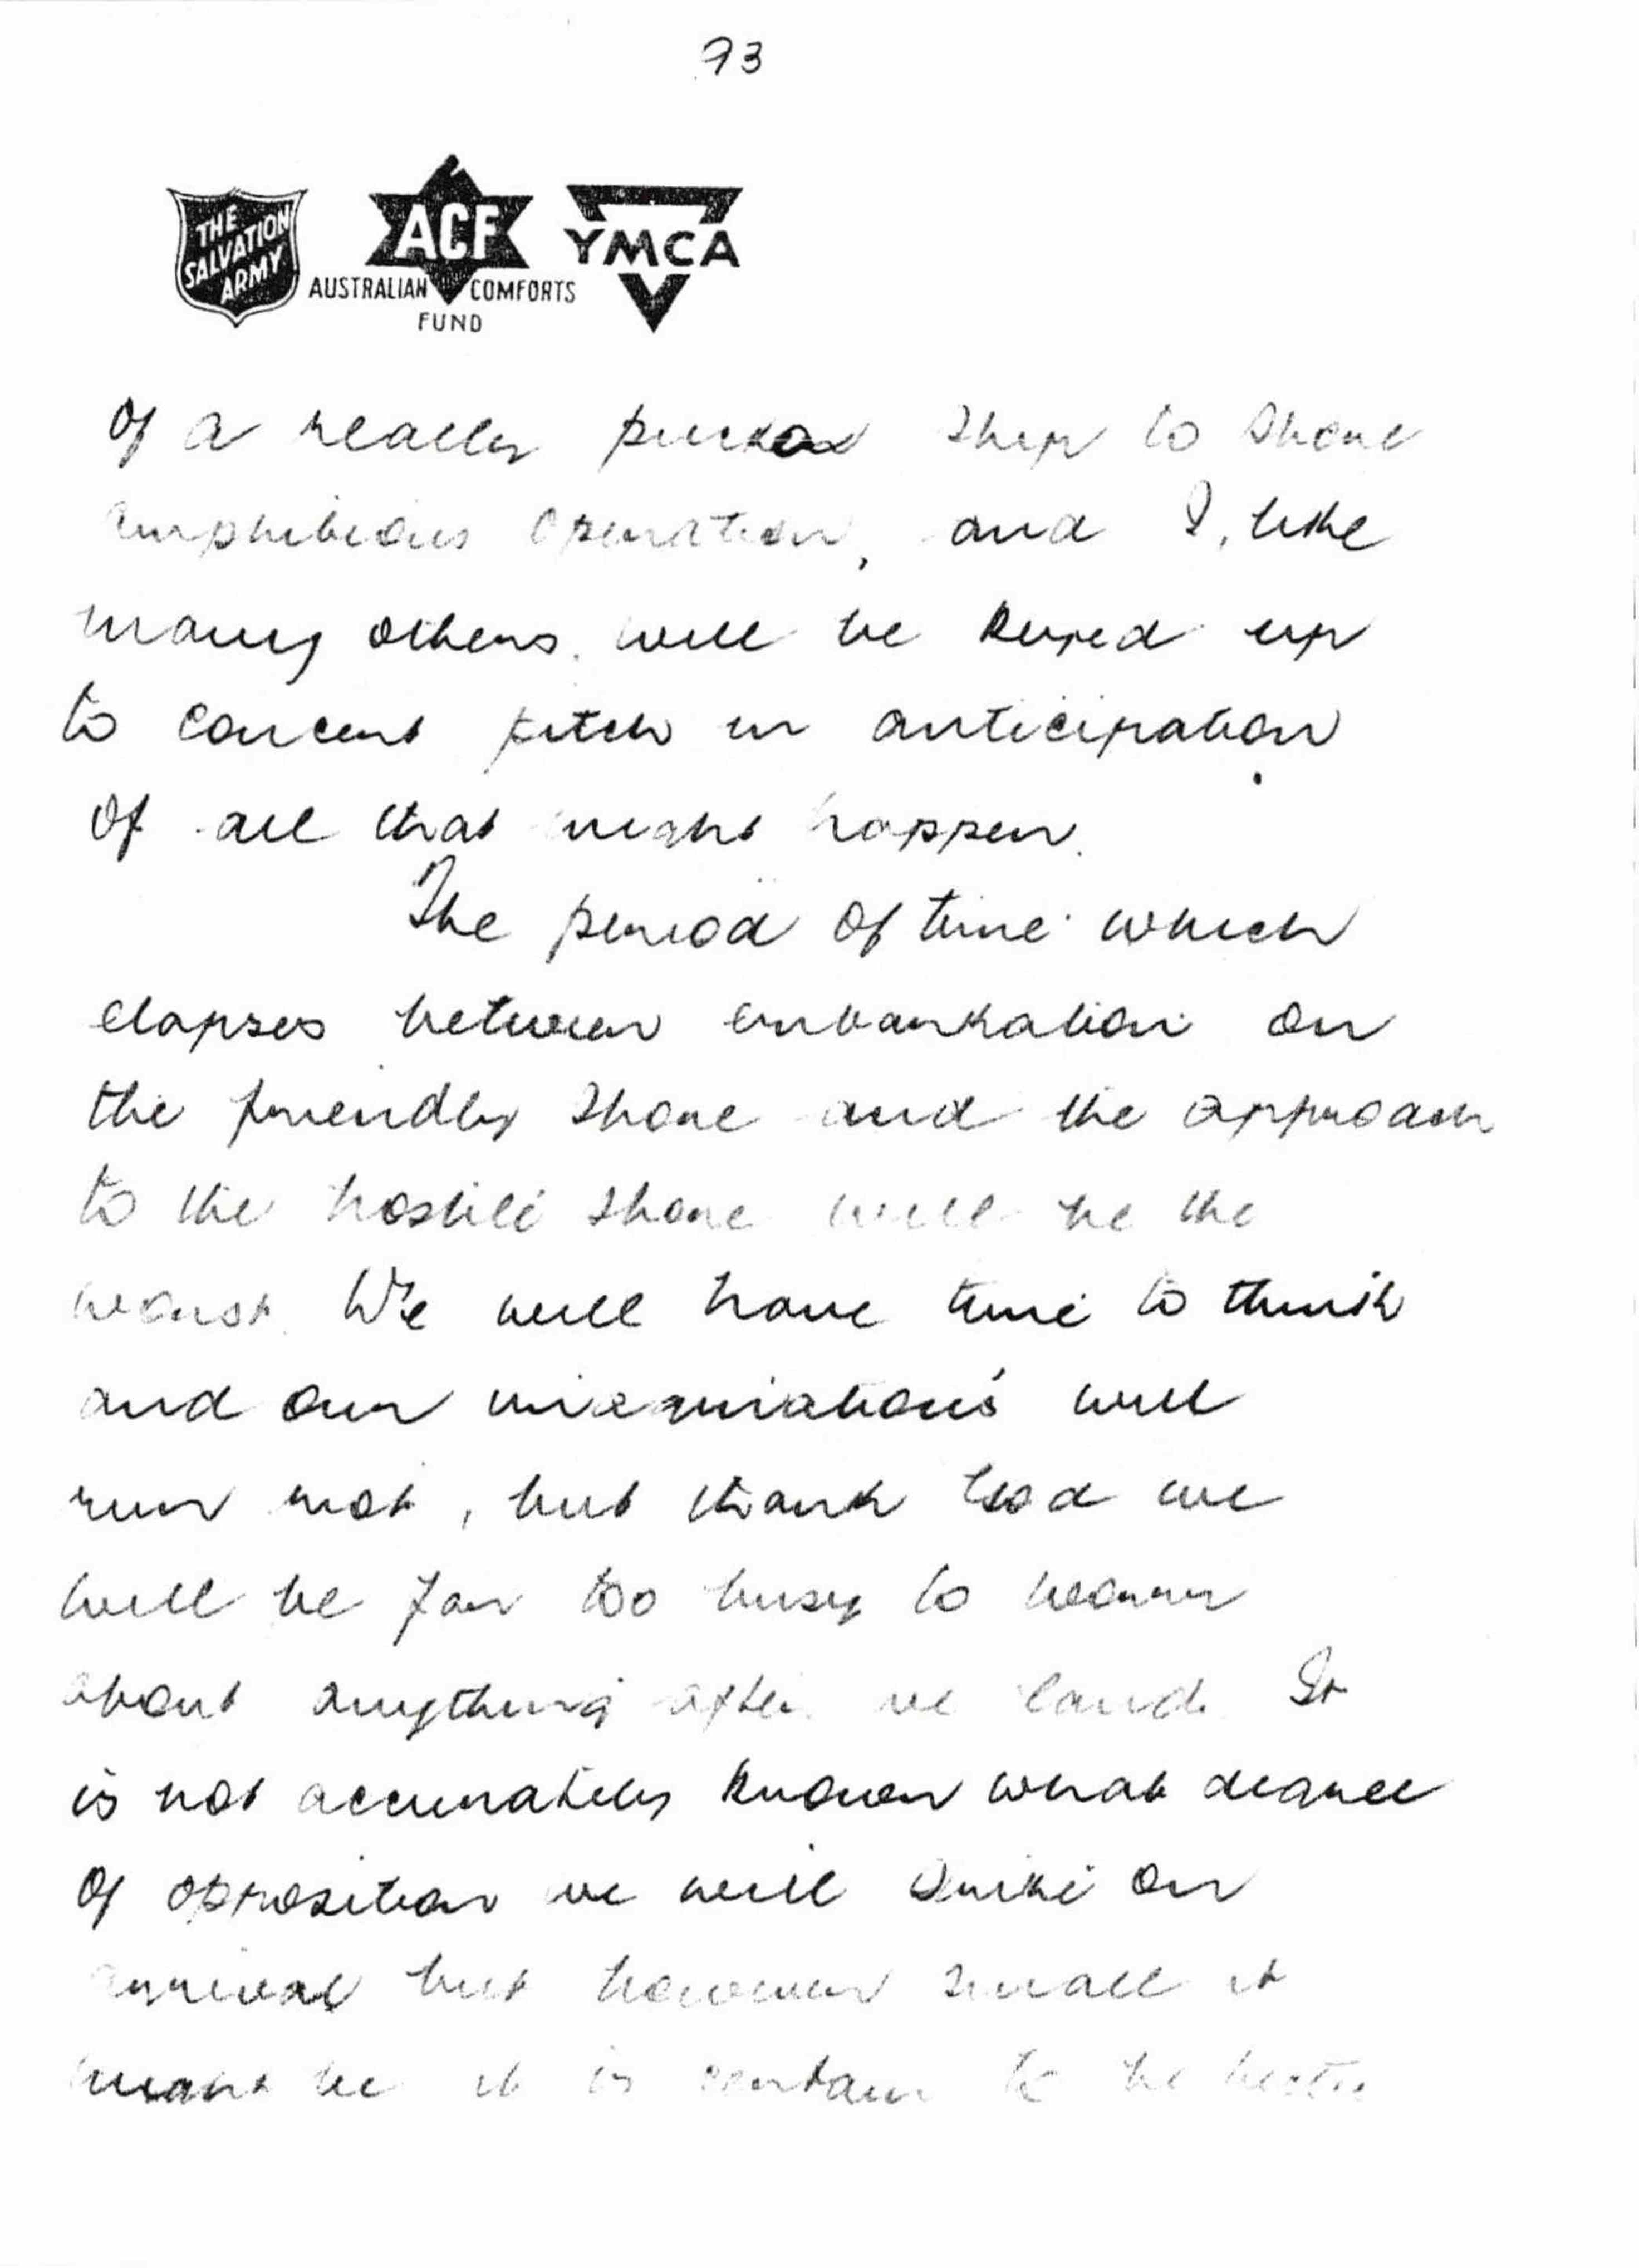 73
THE
SALVATION
ARMY
ACF
AUSTRALIAN COMFORTS
FUND
YMCA
of a really pukka ship to shore
amphibious operation, and I, like
many others, will be keyed up
to concert pitch in anticipation
of all that might happen.
The period of time which
elapses between embarkation on
the friendly shore and the approach
to the hostile shore will be the
worst. We will have time to think
and our imaginations will
run riot, but thank God we
will be far too busy to worry
about anything after we land. It
is not accurately known what degree
of opposition we will strike on
arrival but however small it
might be it is certain to be